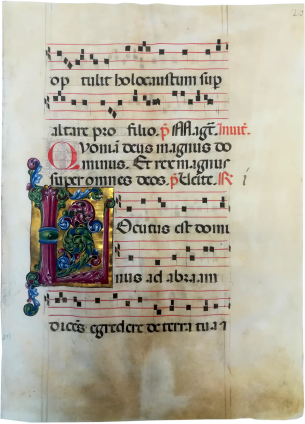 op tulit holocaustum sup
altare pro filio. p̄ Mag̅t. Inuit̅.
Quoniā deus magnus do
minus. Et rex magnus
super omnes deos. p̄ Uēite. R̄ i
Locutus est domi
nus ad abraam
dicēs egredere de terra tua